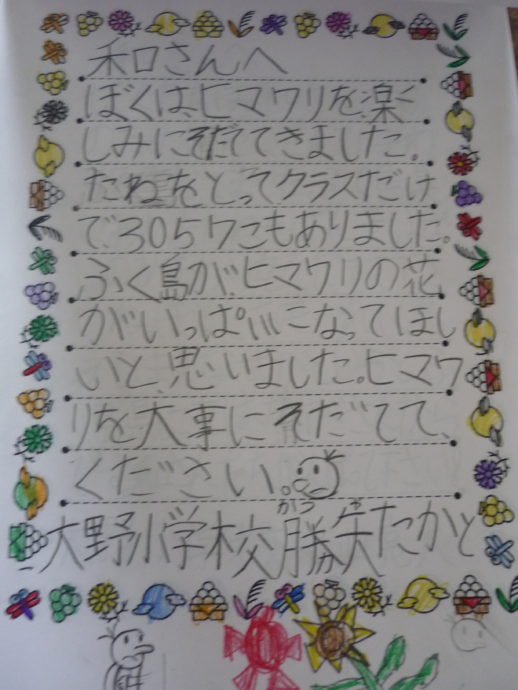 和さんへ
ぼくは、ヒマワリを、楽
しみにそだててきました。
たねをとってクラスだけ
で、3057こもありました。
ふく島が、ヒマワリの花
がいっぱいになってほし
いと、思いました。ヒマワ
リを大事にそだてて、
ください。
かつ や
大野小学校 勝矢たかと